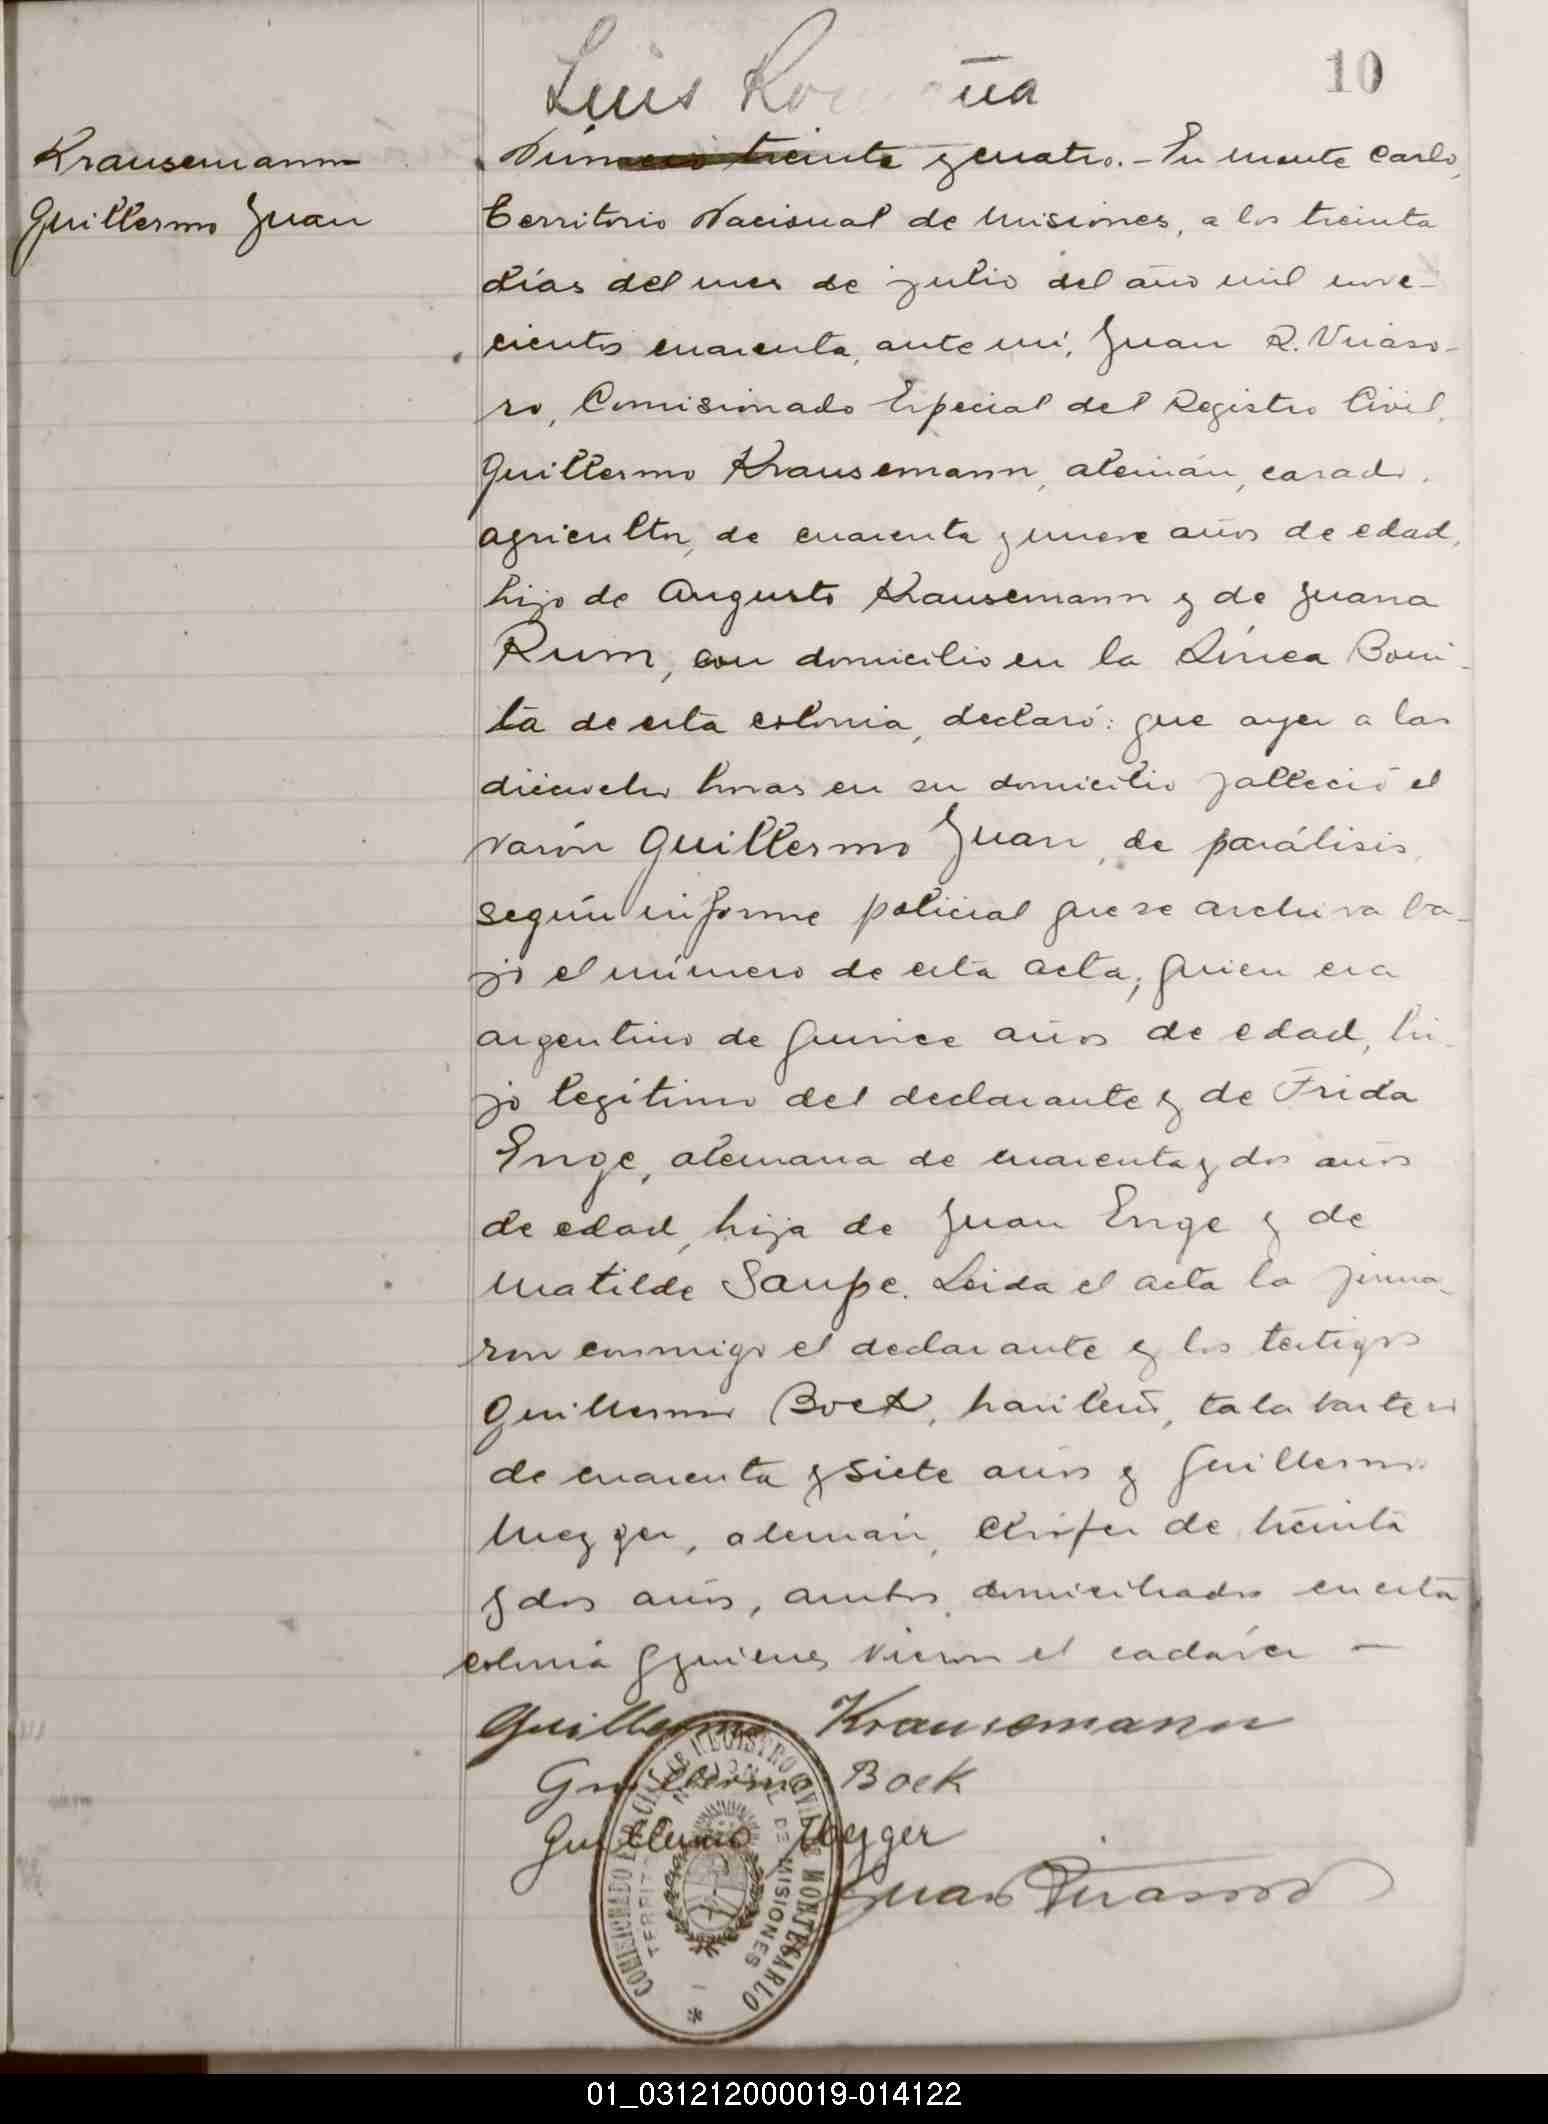 10
Luis Ro ña
Krausemann
Guillermo Juan
Número treinta y cuatro. - En Monte Carlo,
Territorio Nacional de Misiones, a los treinta
días del mes de julio del año mil nove-
cientos cuarenta, ante mí, Juan R. Viraso-
ro, Comisionado Especial del Registro Civil,
Guillermo Krausemann, alemán, casado,
agricultor, de cuarenta y nueve años de edad,
hijo de Augusto Krausemann y de Juana
Rum, con domicilio en la Línea Boni-
ta de esta colonia, declaró: que ayer a las
dieciocho horas en su domicilio falleció el
varón Guillermo Juan, de parálisis,
según informe policial que se archiva ba-
jo el número de esta acta, quien era
argentino de quince años de edad, hi-
jo legítimo del declarante y de Frida
Enge, alemana de cuarenta y dos años
de edad, hija de Juan Enge y de
Matilde Saupe. Leida el acta la firma-
ron conmigo el declarante y los testigos
Guillermo Boek, talabartero
de cuarenta y siete años y Guillermo
Mezger, alemán, chófer de treinta
y dos años, ambos domiciliados en esta
colonia y quienes vieron el cadáver —
Guillermo Krausemann
Guillermo Boek
Guillermo Mezger
Juan Virasoro
COMISIONADO ESPECIAL DE REGISTRO CIVIL MONTECARLO
TERRIT NACIONAL DE MISIONES
01_031212000019-014122